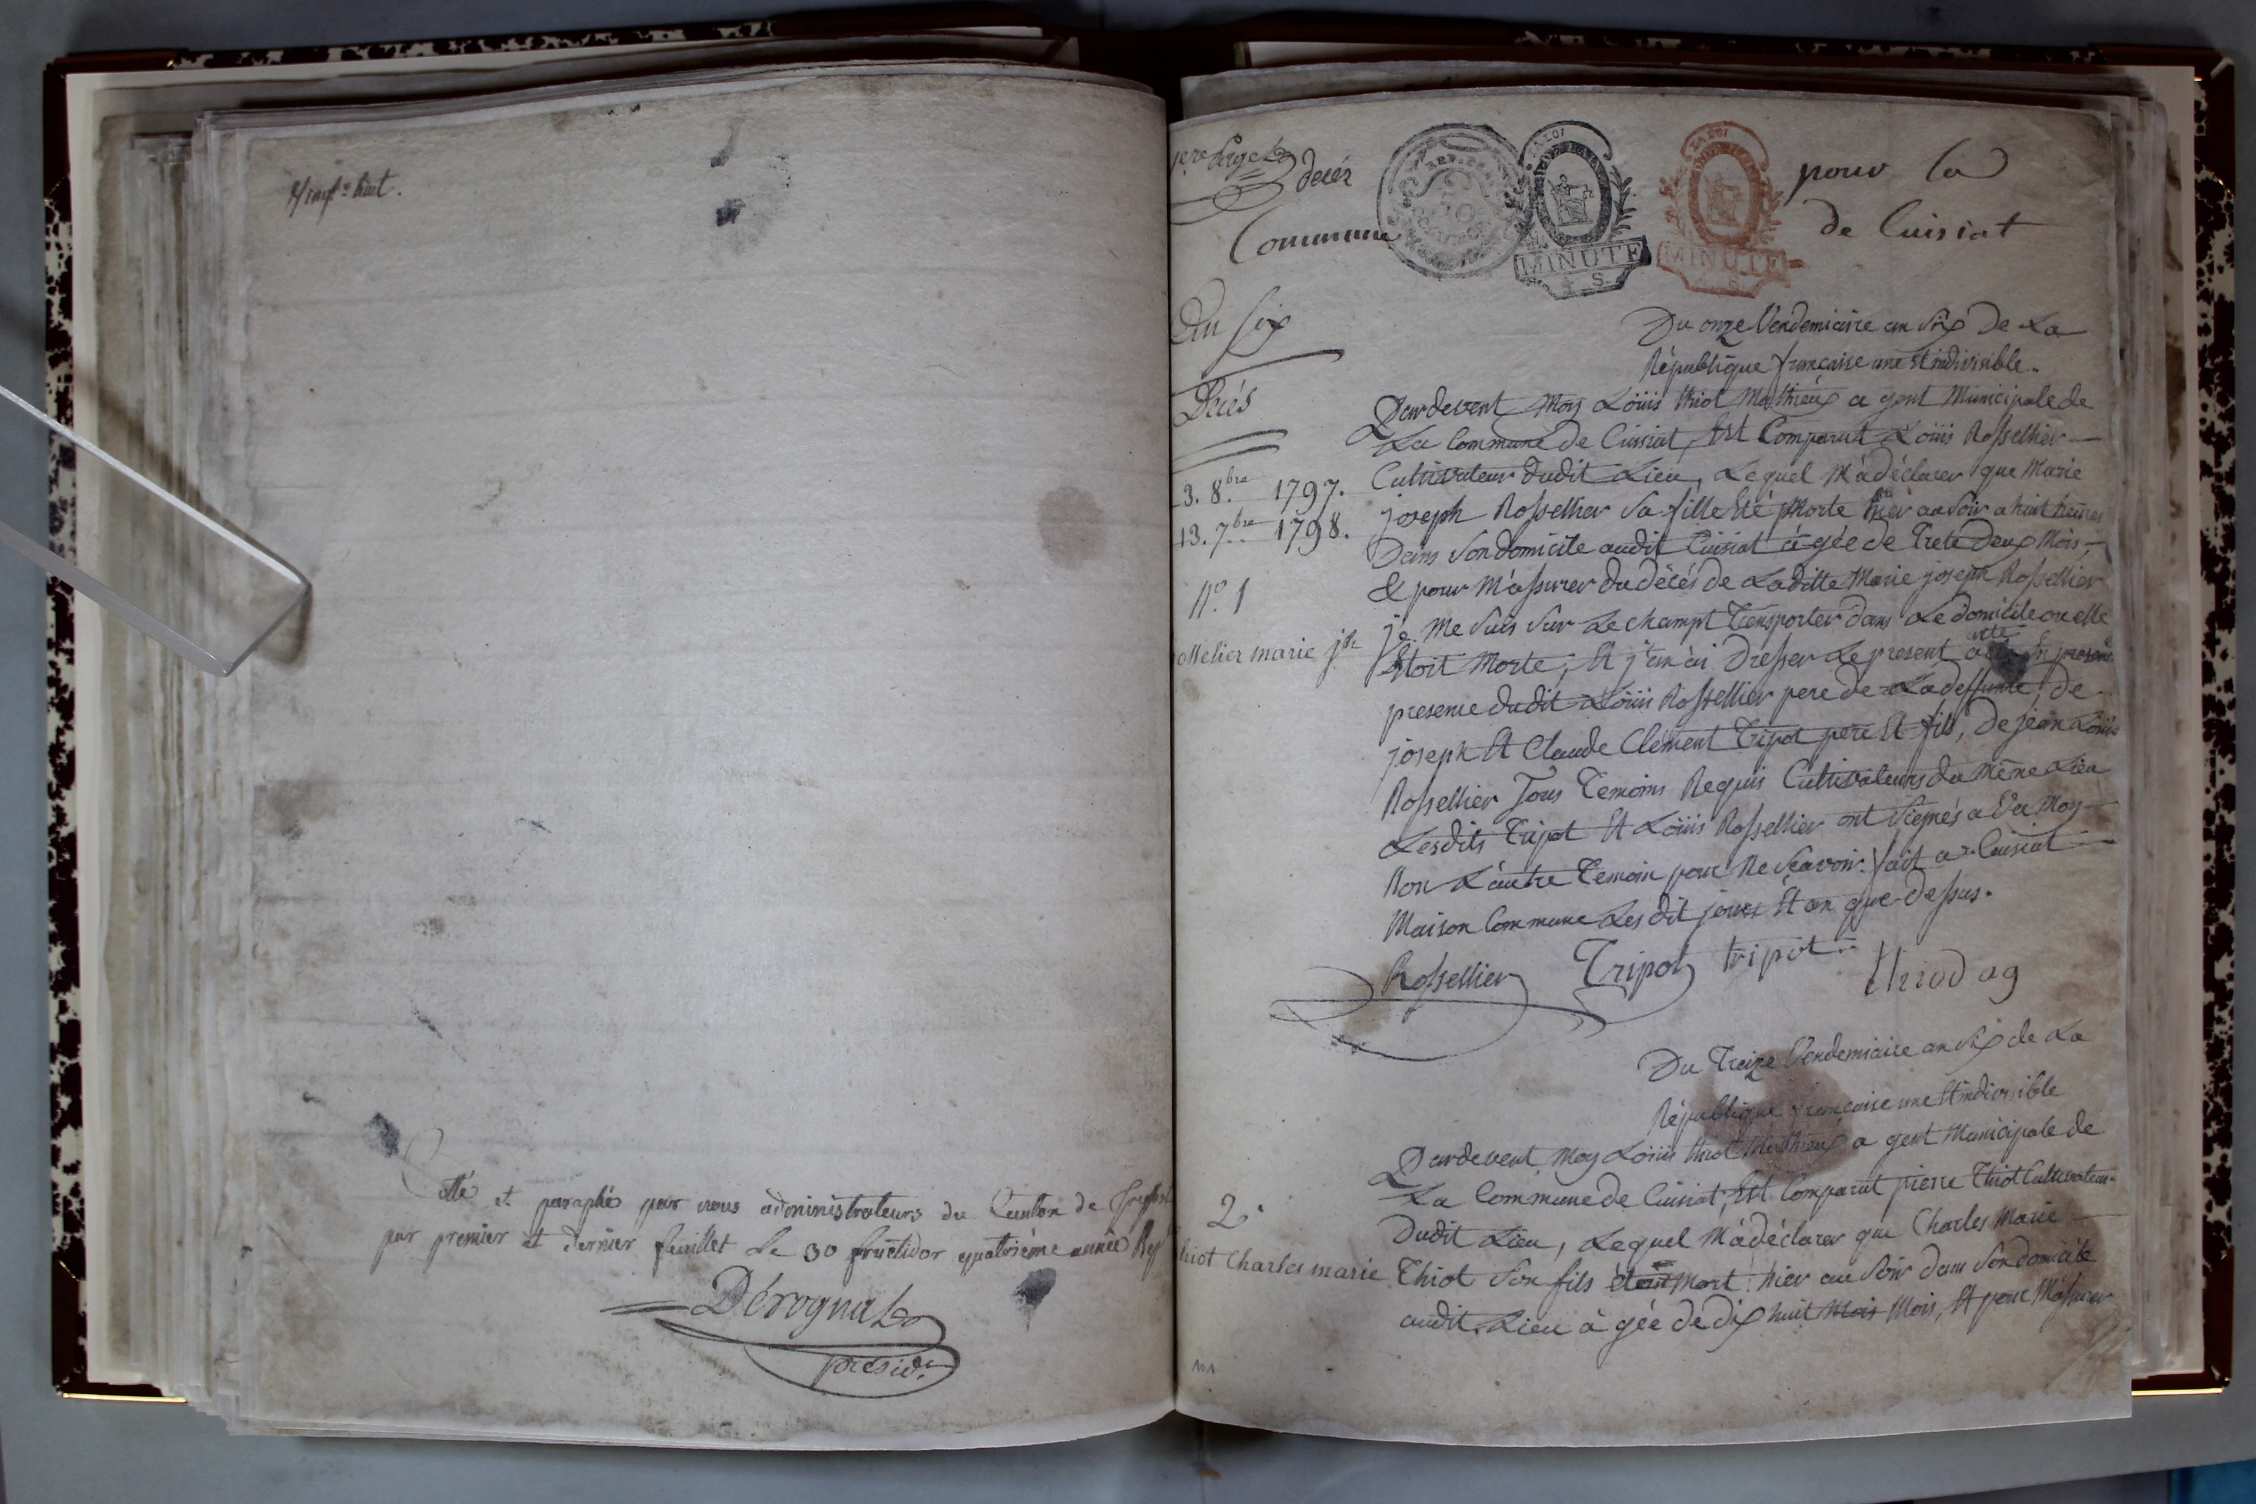 huit.
Cotté et paraphé par nous administrateurs du Canton de
par premier et dernier feuillet le 30 fructidor quatrième année Rep
Dérognat
présid.
1ere page
decér
pour la
Commune
de Cuisiat
LA LOI
LA LOI
MINUTE
MINUTE
An six
Décés
3. 8.bre 1797.
13. 7.bre 1798.
N.o 1
osselier marie jph
Du onze Vendemiaire an Six De La
République françoise une Et indivisible.
Pardevent Moy Loüis thiot Mathieux a gent Municipale de
La Commune de Cuisiat, Est Comparut Loüis Rossellier
Cultivateur Dudit Lieu, Lequel M'a déclarer que Marie
joseph Rossellier Sa fille Eté Morte hier au Soir a huit heures
Dans Son domicile audit Cuisiat a gée de Trete Deux Mois,
& pour M'assurer du décés de Laditte Marie joseph Rossellier
je me Suis Sur Le champt Transporter dans Le domicile ou elle
Etoit Morte; Et j'an ai Dresser Le present acte En presen
presence dudit Loüis Rossellier pere de La deffunte, de
joseph Et Claude Clément Tripot pere Et fils, De jean Loüis
Rossellier Tous Temoins Requis Cultivateurs du Même Lieu
Lesdits Tripot Et Loüis Rossellier ont Signés a Vec Moy
Non L'autre Temoin pour Ne Sçavoir. fait a Cuisiat
Maison Commune Les dit jour Et an que dessus.
Rossellier Tripot tripot thiod ag
Du Treize Vendemiaire an Six de La
République françoise une Et indivisible
2.
hiot Charles marie
Pardevent Moy Loüis thiot Mathieux a gent Municipale de
La Commune de Cuisiat, Est Comparut pierre Thiot Cultivateur
Dudit Lieu, Lequel M'a déclarer que Charles Marie
Thiot Son fils Mort hier au Soir dans Son domicile
audit Lieu a gée de dix huit Mois Mois, Et pour M'assurer